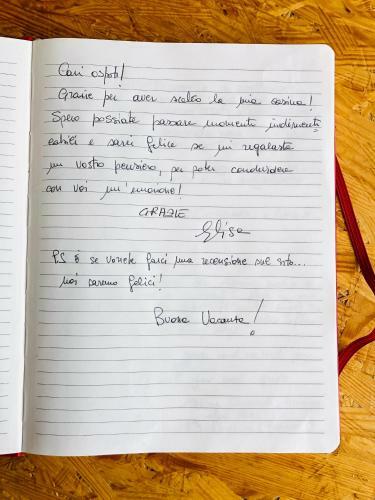 Cari ospiti!
Grazie per aver scelto la mia casina!
Spero possiate passare momenti indimenti=
cabili e sarei felice se mi regalaste
un vostro pensiero, per poter condividere
con voi un'emozione!
GRAZIE
Elisa
P.S. E se vorrete farci una recensione sul sito...
noi saremo felici!
Buona Vacanza!